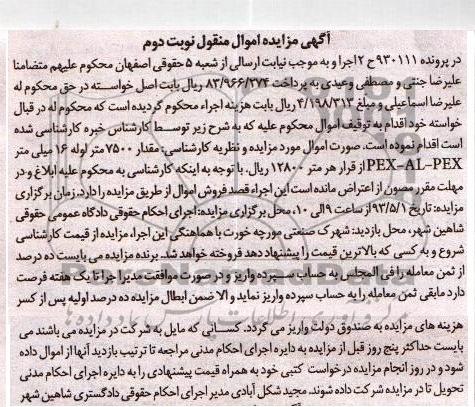 آگهی مزایده اموال منقول نوبت دوم
در پرونده ۹۳۰۱۱۱ ح ۲ اجرا و به موجب نیابت ارسالی از شعبه ۵ حقوقی اصفهان محکوم علیهم متضامنا
علیرضا جنتی و مصطفی وعیدی به پرداخت ۸۳/۹۶۶/۳۷۴ ریال بابت اصل خواسته در حق محکوم له
علیرضا اسماعیلی و مبلغ ۴/۱۹۸/۳۱۳ ریال بابت هزینه اجراء محکوم گردیده است که محکوم له در قبال
خواسته خود اقدام به توقیف اموال محکوم علیه که به شرح زیر توسط کارشناس خبره کارشناسی شده
است اقدام نموده است. صورت اموال مورد مزایده و نظریه کارشناسی: مقدار ۷۵۰۰ متر لوله ۱۶ میلی متر
PEX-AL-PEX از قرار هر متر ۱۲۸۰۰ ریال. با توجه به اینکه کارشناسی به محکوم علیه ابلاغ و در
مهلت مقرر مصون از اعتراض مانده است این اجراء قصد فروش اموال از طریق مزایده را دارد. زمان برگزاری
مزایده: تاریخ ۹۳/۵/۱ از ساعت ۹ الی ۱۰، محل برگزاری مزایده: اجرای احکام حقوقی دادگاه عمومی حقوقی
شاهین شهر، محل بازدید: شهرک صنعتی مورچه خورت با هماهنگی این اجراء، مزایده از قیمت کارشناسی
شروع و به کسی که بالاترین قیمت را پیشنهاد دهد فروخته خواهد شد. برنده مزایده می بایست ده درصد
از ثمن معامله را فی المجلس به حساب سپرده واریز و در صورت موافقت مدیر اجرا تا یک هفته فرصت
دارد مابقی ثمن معامله را به حساب سپرده واریز نماید و الا ضمن ابطال مزایده ده درصد اولیه پس از کسر
هزینه های مزایده به صندوق دولت واریز می گردد. کسانی که مایل به شرکت در مزایده می باشند می
بایست حداکثر پنج روز قبل از مزایده به دایره اجرای احکام مدنی مراجعه تا ترتیب بازدید آنها از اموال داده
شود و در روز انجام مزایده درخواست کتبی خود به همراه قیمت پیشنهادی را به دایره اجرای احکام مدنی
تحویل تا در مزایده شرکت داده شوند. مجید شکل آبادی مدیر اجرای احکام حقوقی دادگستری شاهین شهر